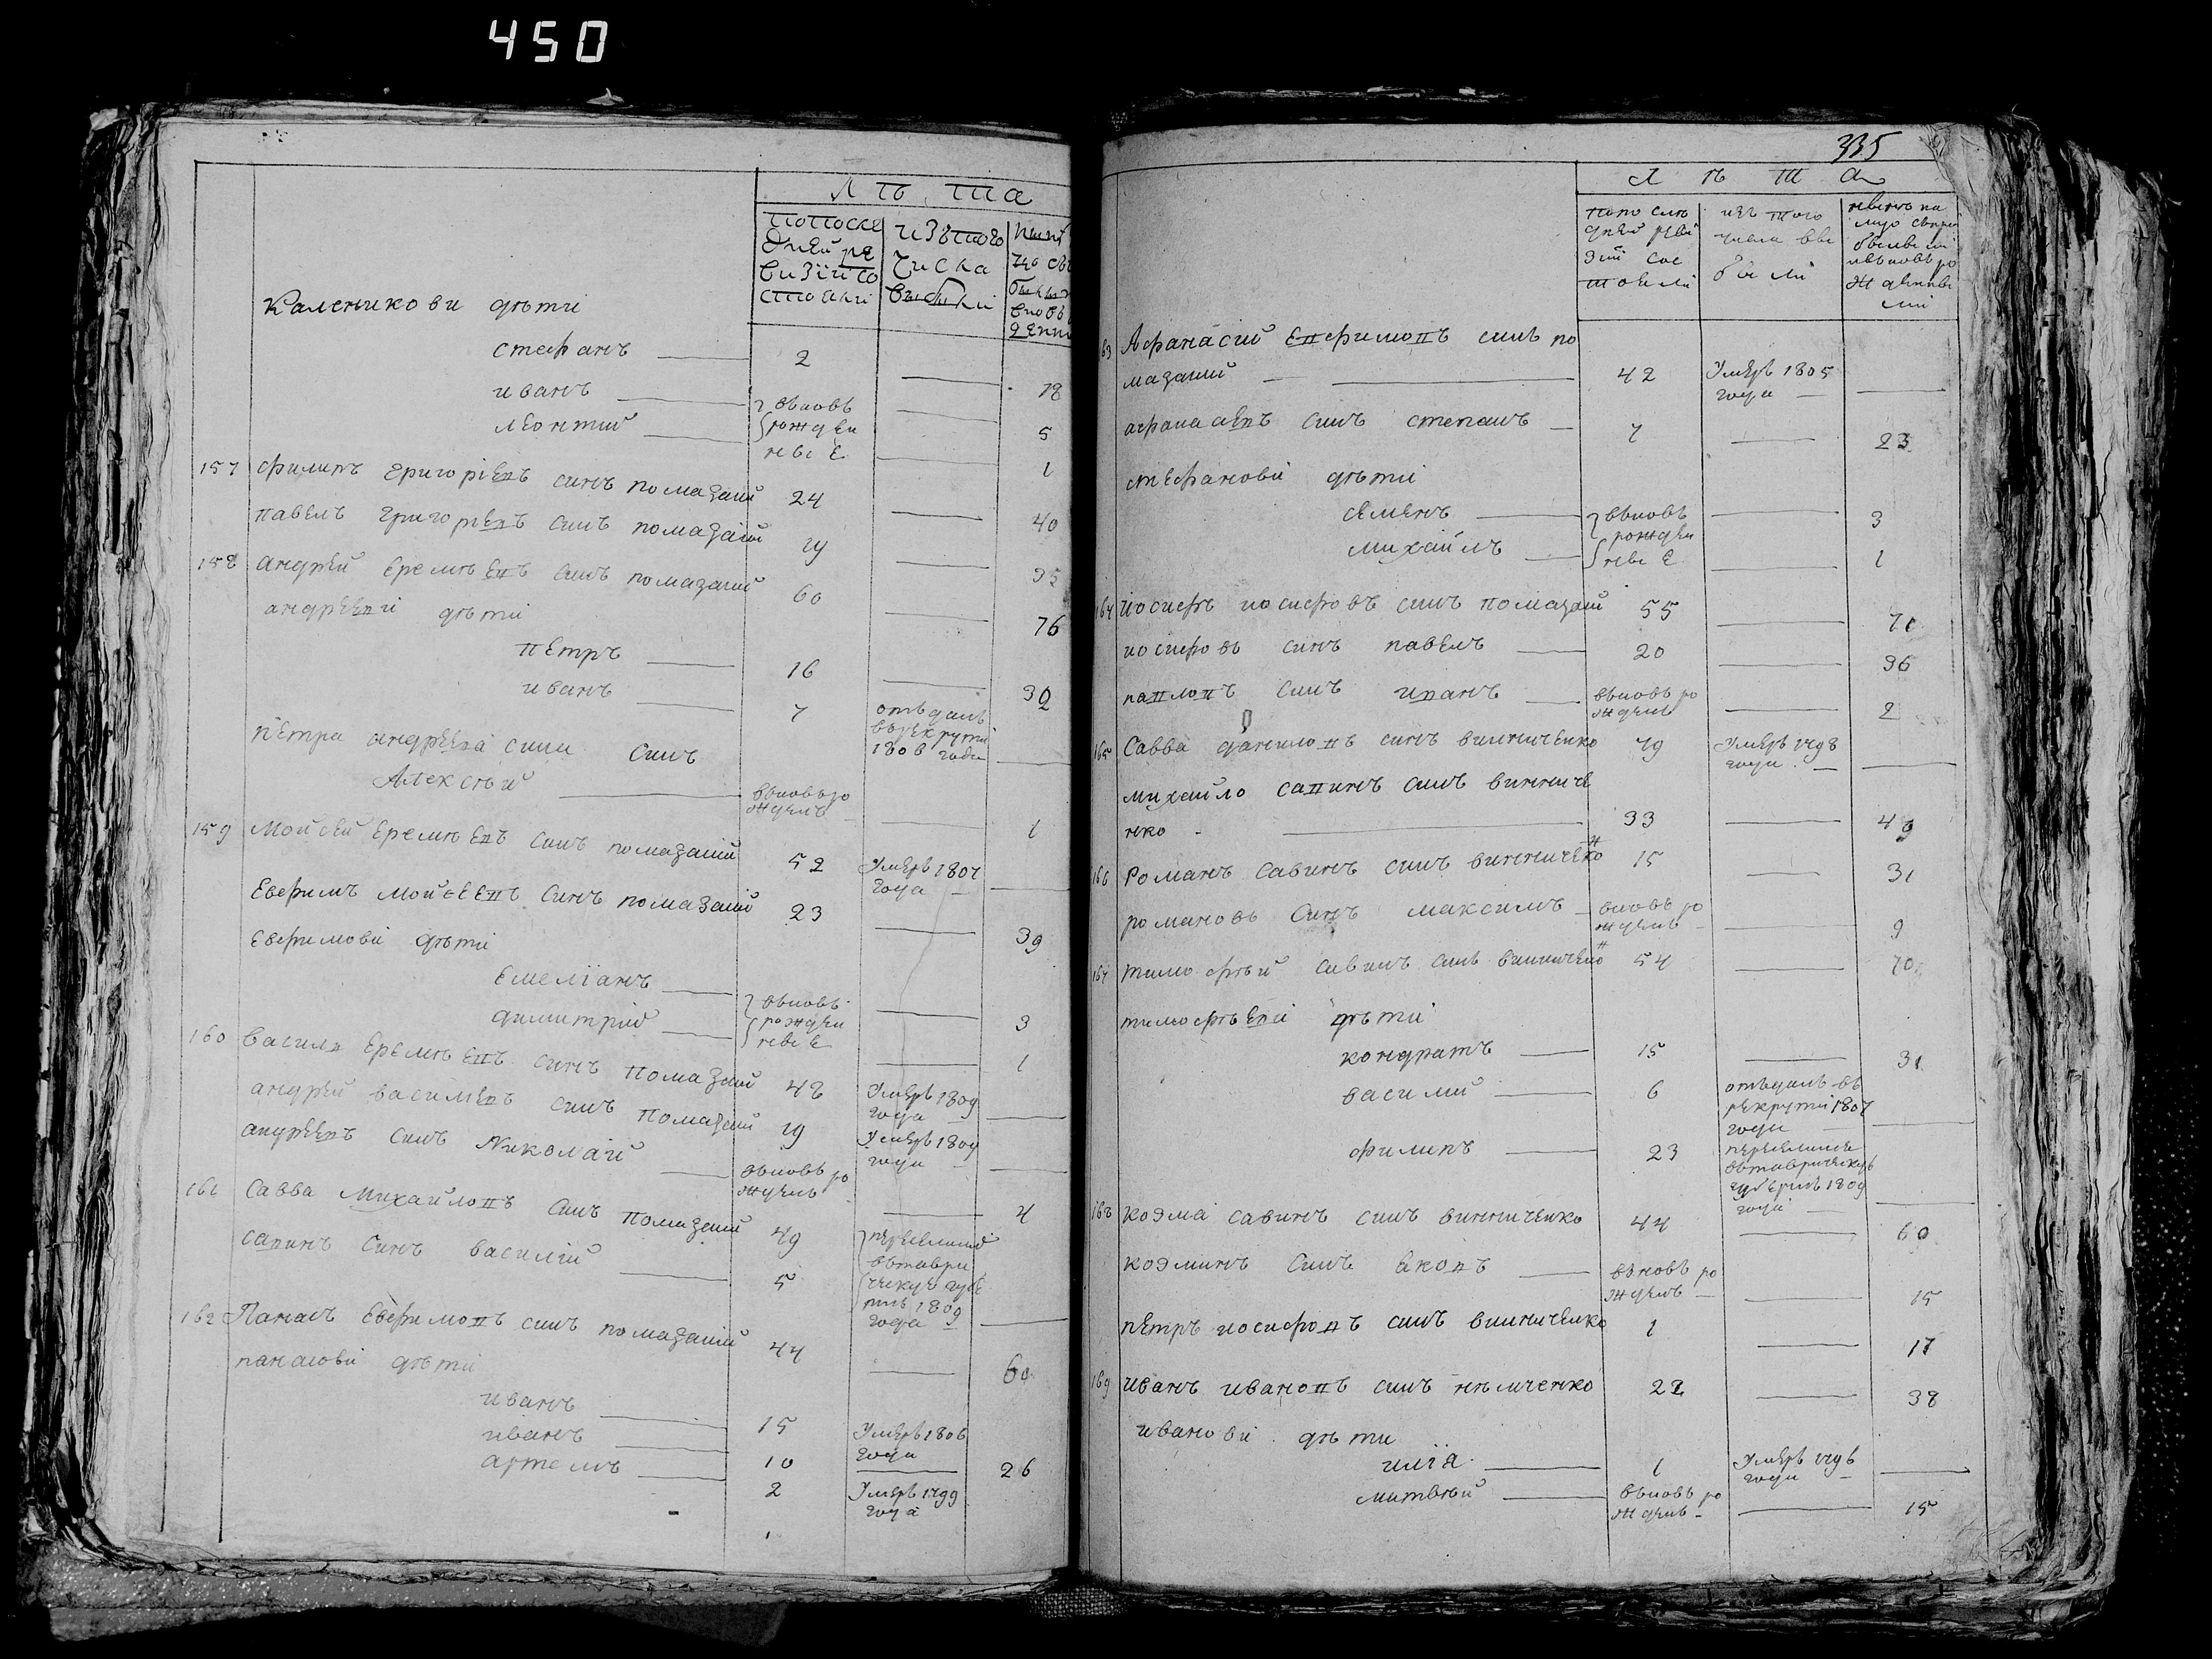 450
Л ѣ та
попоске
дней ре
визїи со
стояли
изътого
числа
выбыли
Каленикови дѣти
стефанъ 2 18
иванъ вьновь 5
леонтий рожден 1
ные
157 филипъ григоріевъ синъ помазаний 24 40
павелъ григоріевъ синъ помазаний 19 35
158 андрей еремѣевъ синъ помазаний 60 76
андрееви дѣти
петръ 16 32
иванъ 7 отъданъ
въ рекрути
1806 года
петра андреева сина синъ
Алексѣй вьновь ро
жденъ 1
159 Мойсей еремѣевъ синъ помазаний 52 Умеръ 1807
года
Евфимъ мойсеевъ синъ помазаний 23 39
евфимови дѣти
емеліанъ вьновь 3
димитрий рожден 1
ные
160 василь еремѣевъ синъ помазаний 48 Умеръ 1809
года
андрей василевъ синъ помазаний 19 Умеръ 1809
года
андреевъ синъ Николай вьновь ро
жденъ 4
161 Савва михайловъ синъ помазаний 49 переселился
савинъ синъ василій 5 вътаври
ческую губе
рнѣ 1809
года
162 Панасъ евфимовъ синъ помазаний 44 60
панасови дѣти
иванъ 15 Умеръ 1806
года
иванъ 10 26
артемъ 2 Умеръ 1799
года
335
Л ѣ т а
попо слѣ
дней реви
зии сос
тояли
изъ того
числа вы
были
нынѣ на
лицо
63 Афанасий евфимовъ синъ по
мазаний 42 Умеръ 1805
года
афанасиевъ синъ степанъ 7 23
стефанови дѣти
семенъ вьновь 3
рожден
михайлъ ные 1
164 иосифъ иосифовъ синъ помазаний 55 71
иосифовъ синъ павелъ 20 36
павловъ синъ иванъ вьновь ро
жденъ 2
165 Савва даниловъ синъ винниченко 79 Умеръ 1798
года
михайло савинъ синъ винниче
нко 33 49
166 Романъ савинъ синъ винниченко 15 31
романовъ синъ максимъ вновь ро
жденъ 9
167 тимофѣй савинъ синъ винниченко 54 70
тимофѣеви дѣти
кондратъ 15 31
василий 6 отъданъ въ
рекрути 1807
года
филипъ 23 переселился
вътаврическую
губернѣ 1809
года
168 козма савинъ синъ винниченко 44 60
козминъ синъ яковъ вьновь ро
жденъ 15
петръ иосифовъ синъ винниченко 1 17
169 иванъ ивановъ синъ нѣмченко 22 38
иванови дѣти
илія 1 Умеръ 1796
года
митвѣй вьновь ро
жденъ 15